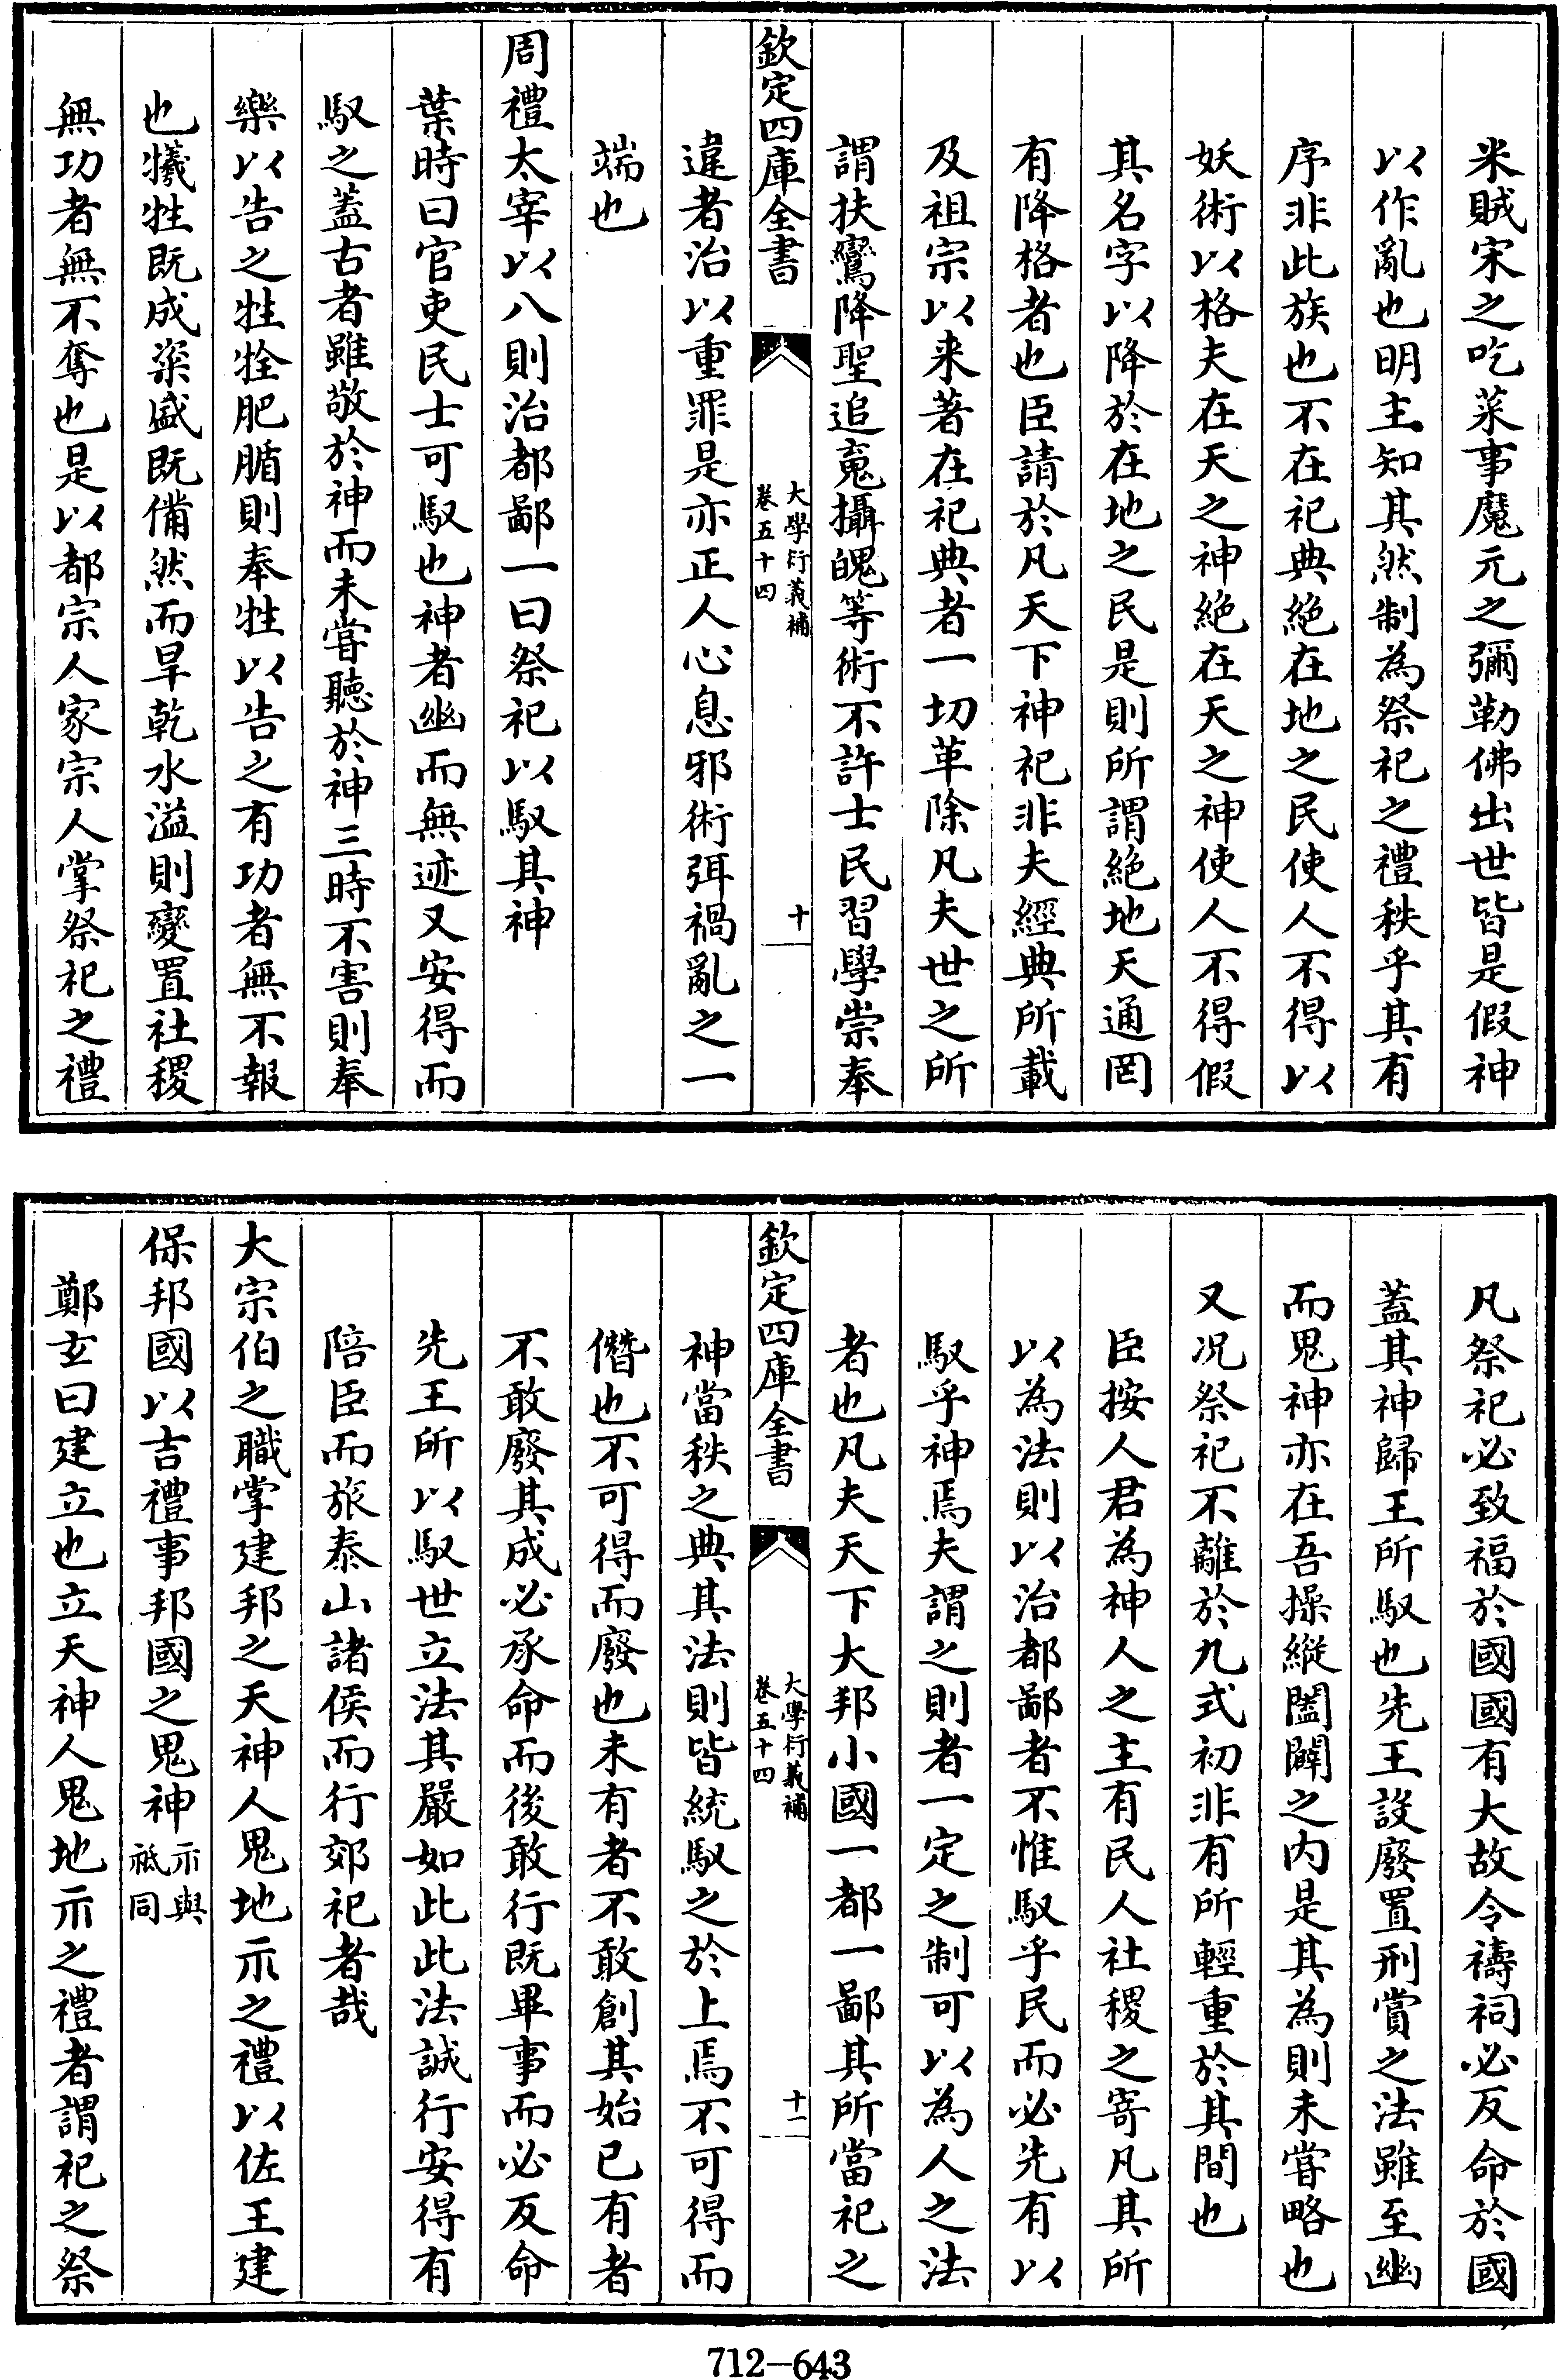 米賊宋之吃菜事魔元之彌勒佛出世皆是假神
以作亂也明主知其然制為祭祀之禮秩乎其有
序非此族也不在祀典絶在地之民使人不得以
妖術以格夫在天之神絶在天之神使人不得假
其名字以降於在地之民是則所謂絶地天通罔
有降格者也臣請於凡天下神祀非夫經典所載
及祖宗以来著在祀典者一切革除凡夫世之所
謂扶鸞降聖追䰟攝魄等術不許士民習學崇奉
欽定四庫全書
大學衍義補
卷五十四
十
違者治以重罪是亦正人心息邪術弭禍亂之一
端也
周禮太宰以八則治都鄙一曰祭祀以馭其神
葉時曰官吏民士可馭也神者幽而無迹又安得而
馭之蓋古者雖敬於神而未嘗聽於神三時不害則奉
樂以告之牲牷肥腯則奉牲以告之有功者無不報
也犧牲既成粢盛既備然而旱乾水溢則變置社稷
無功者無不奪也是以都宗人家宗人掌祭祀之禮
凡祭祀必致福於國國有大故令禱祠必反命於國
蓋其神歸王所馭也先王設廢置刑賞之法雖至幽
而鬼神亦在吾操縱闔闢之内是其為則未嘗略也
又况祭祀不離於九式初非有所輕重於其間也
臣按人君為神人之主有民人社稷之寄凡其所
以為法則以治都鄙者不惟馭乎民而必先有以
馭乎神焉夫謂之則者一定之制可以為人之法
者也凡夫天下大邦小國一都一鄙其所當祀之
欽定四庫全書
大學衍義補
卷五十四
十一
神當秩之典其法則皆統馭之於上焉不可得而
僭也不可得而廢也未有者不敢創其始已有者
不敢廢其成必承命而後敢行既畢事而必反命
先王所以馭世立法其嚴如此此法誠行安得有
陪臣而旅泰山諸侯而行郊祀者哉
大宗伯之職掌建邦之天神人鬼地示之禮以佐王建
保邦國以吉禮事邦國之鬼神示與祗同
鄭玄曰建立也立天神人鬼地示之禮者謂祀之祭
712-643